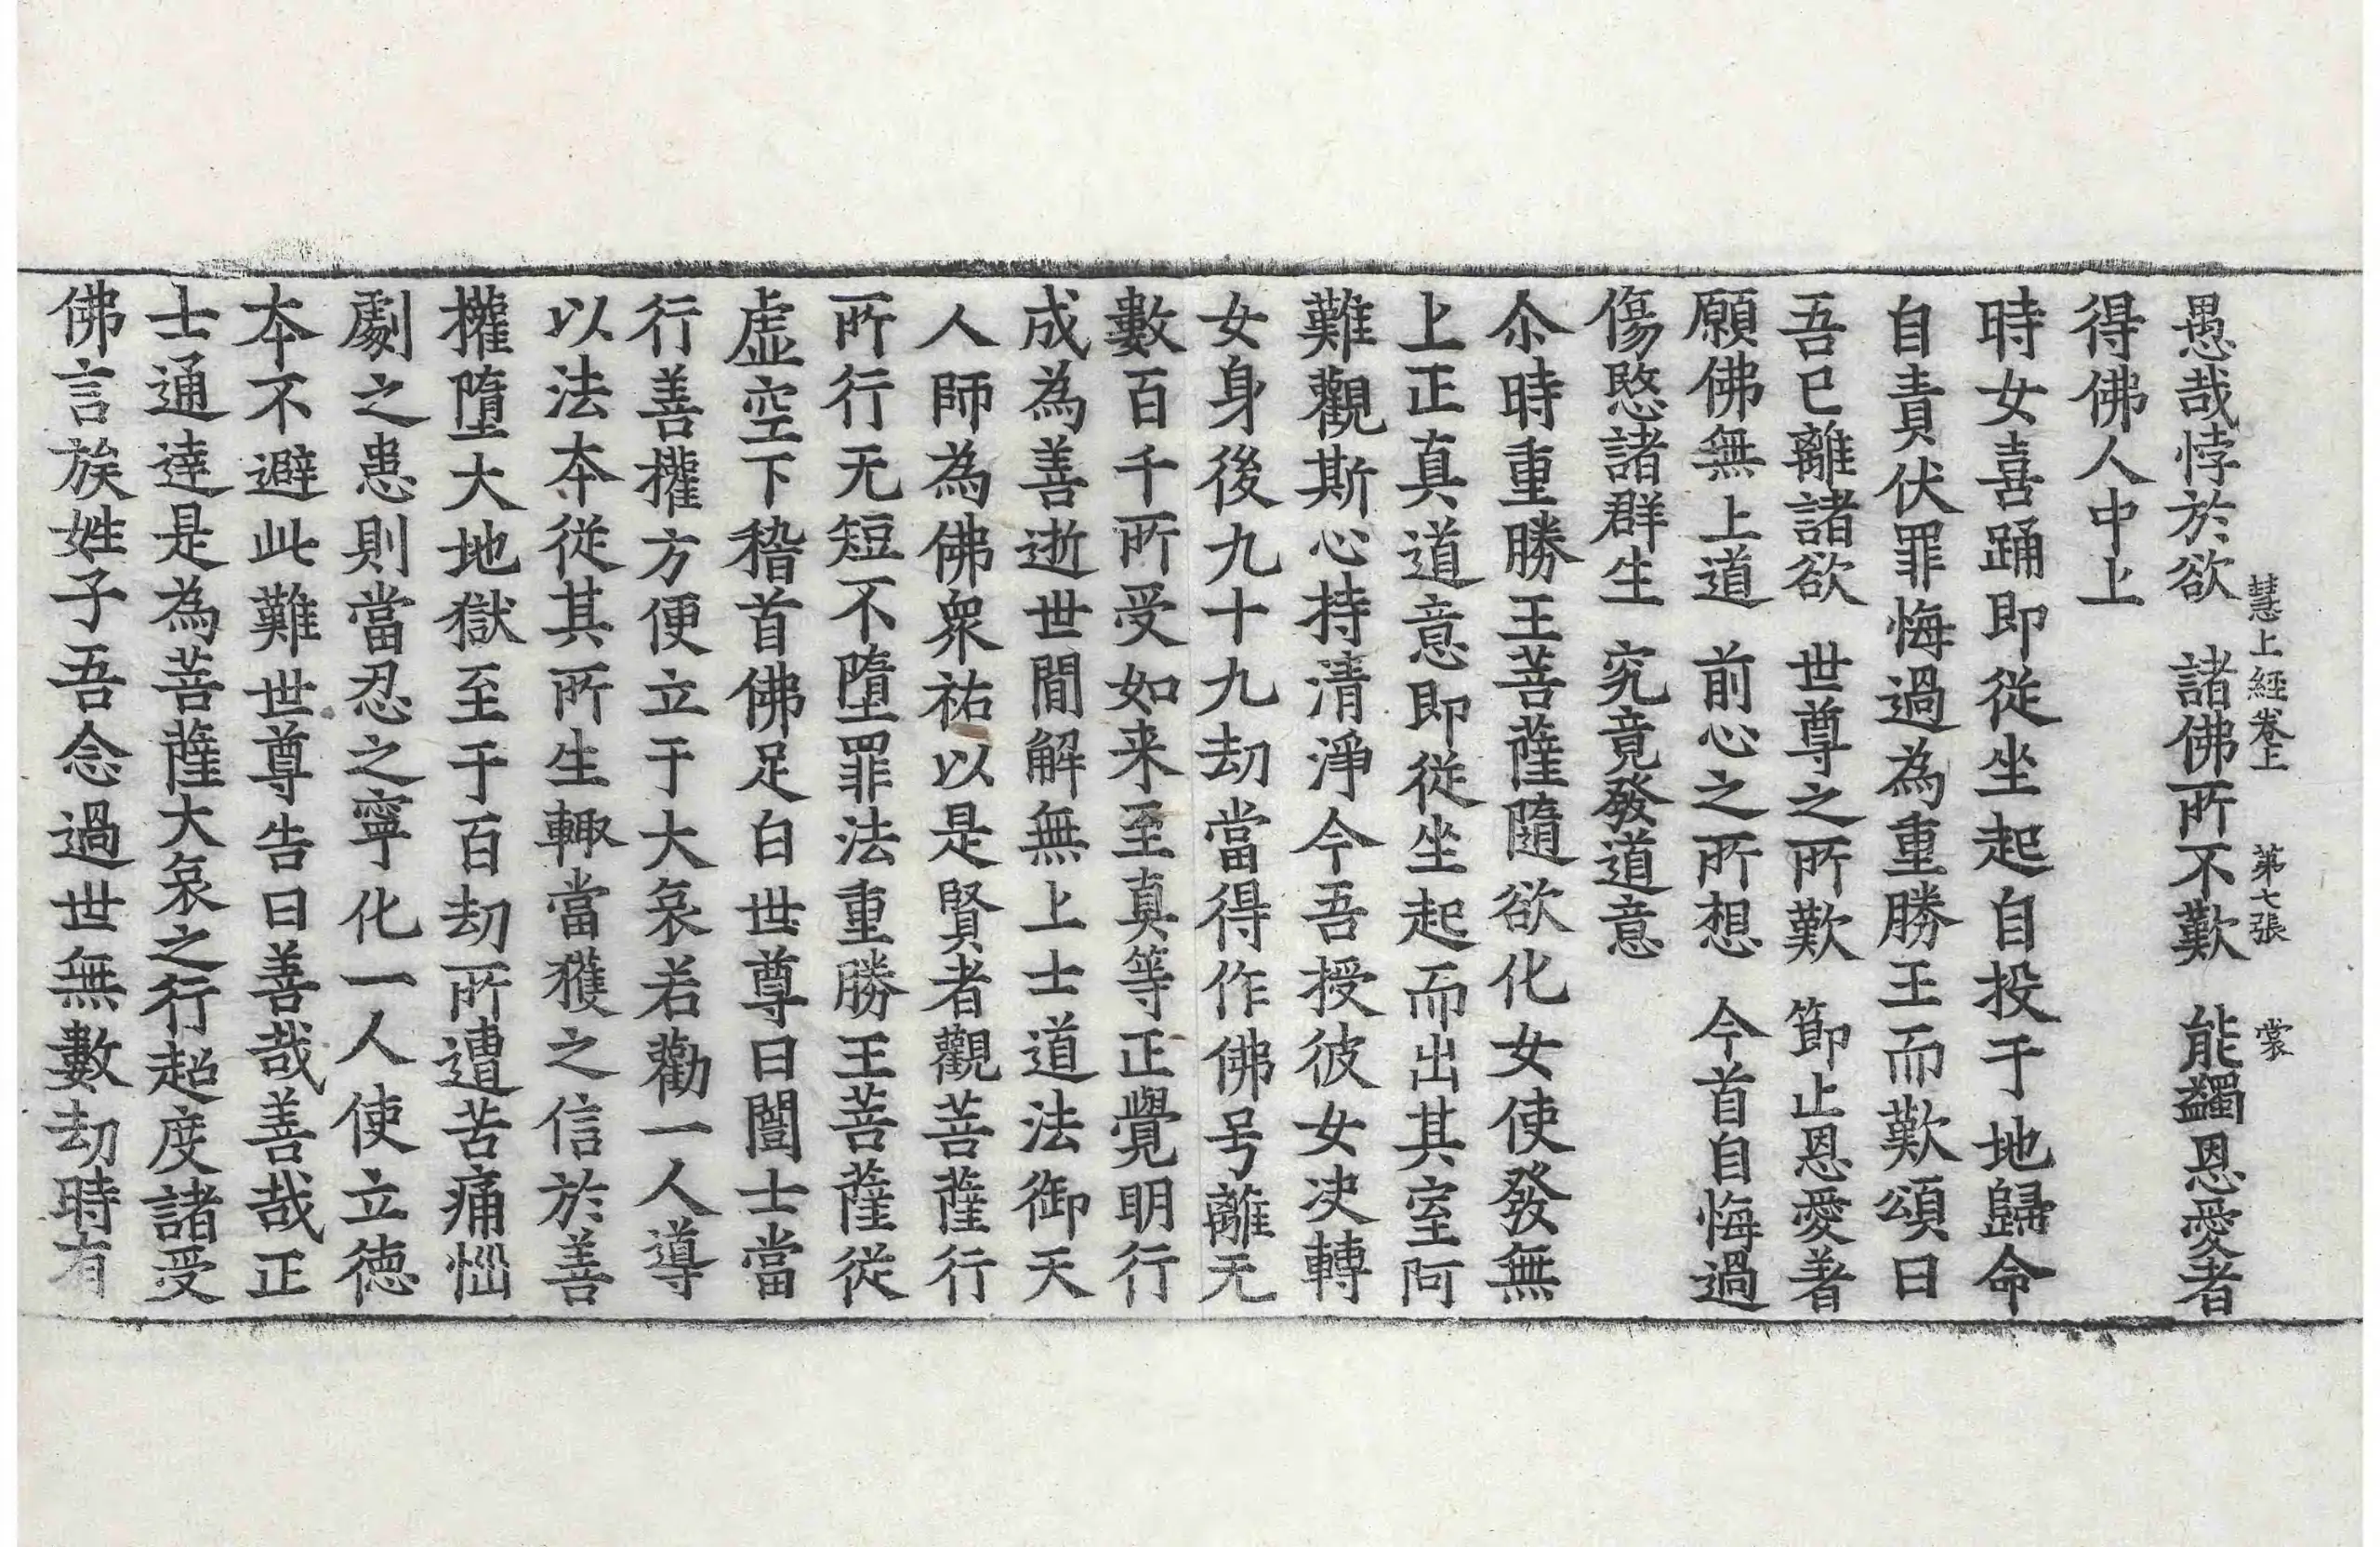 慧上經卷上　第七張　裳
愚哉悖於欲　諸佛所不歎　能蠲恩愛者
得佛人中上
時女喜踊即從坐起自投于地歸命
自責伏罪悔過為重勝王而歎頌曰
吾已離諸欲　世尊之所歎　節止恩愛著
願佛無上道　前心之所想　今首自悔過
傷愍諸群生　究竟發道意
尒時重勝王菩薩隨欲化女使發無
上正真道意即從坐起而出其室阿
難觀斯心持清淨今吾授彼女决轉
女身後九十九劫當得作佛号離无
數百千所受如来至真等正覺明行
成為善逝世間解無上士道法御天
人師為佛衆祐以是賢者觀菩薩行
所行无短不墮罪法重勝王菩薩從
虛空下稽首佛足白世尊曰闓士當
行善權方便立于大哀若勸一人導
以法本從其所生輙當獲之信於善
權墮大地獄至于百劫所遭苦痛惱
劇之患則當忍之寧化一人使立德
本不避此難世尊告曰善哉善哉正
士通達是為菩薩大哀之行超度諸受
佛言族姓子吾念過世無數劫時有